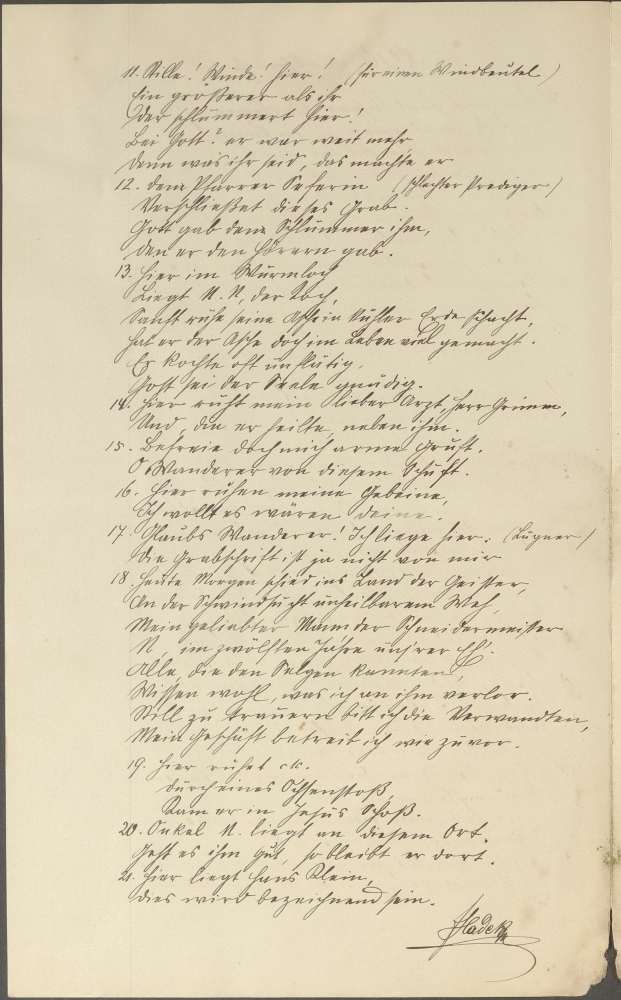 11. Stille! Winde! hier! (für einen Windbeutel)
Ein größerer als ihr
Der schlummert hier!
Bei Gott! er war weit mehr,
Denn was ihr seid, das machte er
12. dem Pfarrer Seferin (schlechter Prediger)
Verschließet dieses Grab.
Gott gab dem Schlummer ihm,
den er den Hörern gab.
13. Hier im Wurmloch
Liegt N. N., der Koch,
Sanft ruhe seine Asche in kühler Erde Schacht,
hat er der Asche doch im Leben viel gemacht.
Er kochte oft unflätig,
Gott sei der Seele gnädig.
14. Hier ruht mein lieber Arzt, Herr Grimm,
Und, die er heilte, neben ihm.
15. Befreie doch mich arme Gruft,
O Wanderer von diesem Schuft.
16. Hier ruhen meine Gebeine,
Ich wollt es wären deine.
17. Glaubs Wanderer! Ich liege hier. (Lügner)
Die Grabschrift ist ja nicht von mir
18. Heute Morgen schied ins Land der Geister,
An der Schwindsucht unheilbarem Weh,
Mein geliebter Mann der Schneidermeister
N., im zwölften Jahre unsrer Eh'.
Alle, die den Selgen kannten,
Wissen wohl, was ich an ihm verlor.
Still zu trauern bitt ich die Verwandten,
Mein Geschäft betreib ich wie zuvor.
19. Hier ruhet etc.
durch eines Ochsenstoß,
Kam er in Jesus Schoß.
20. Onkel N. liegt an diesem Ort.
Geht es ihm gut, so bleibt er dort.
21. Hier liegt Hans Klein,
dies wird bezeichnend sein.
Hladek